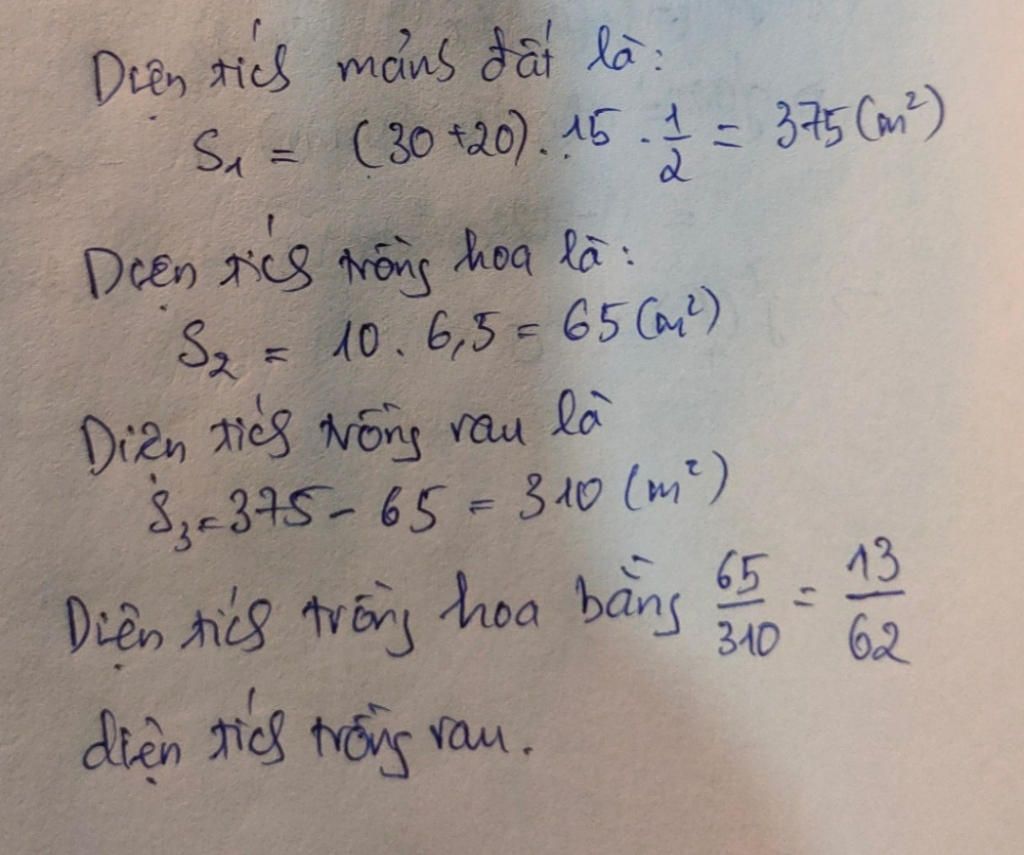 Diện tích mảnh đất là:
S₁ = (30+20). 15 . 1/2 = 375 (m²)
Diện tích trồng hoa là:
S₂ = 10 . 6,5 = 65 (m²)
Diện tích trồng rau là
S₃ = 375 - 65 = 310 (m²)
Diện tích trồng hoa bằng 65/310 = 13/62
diện tích trồng rau.